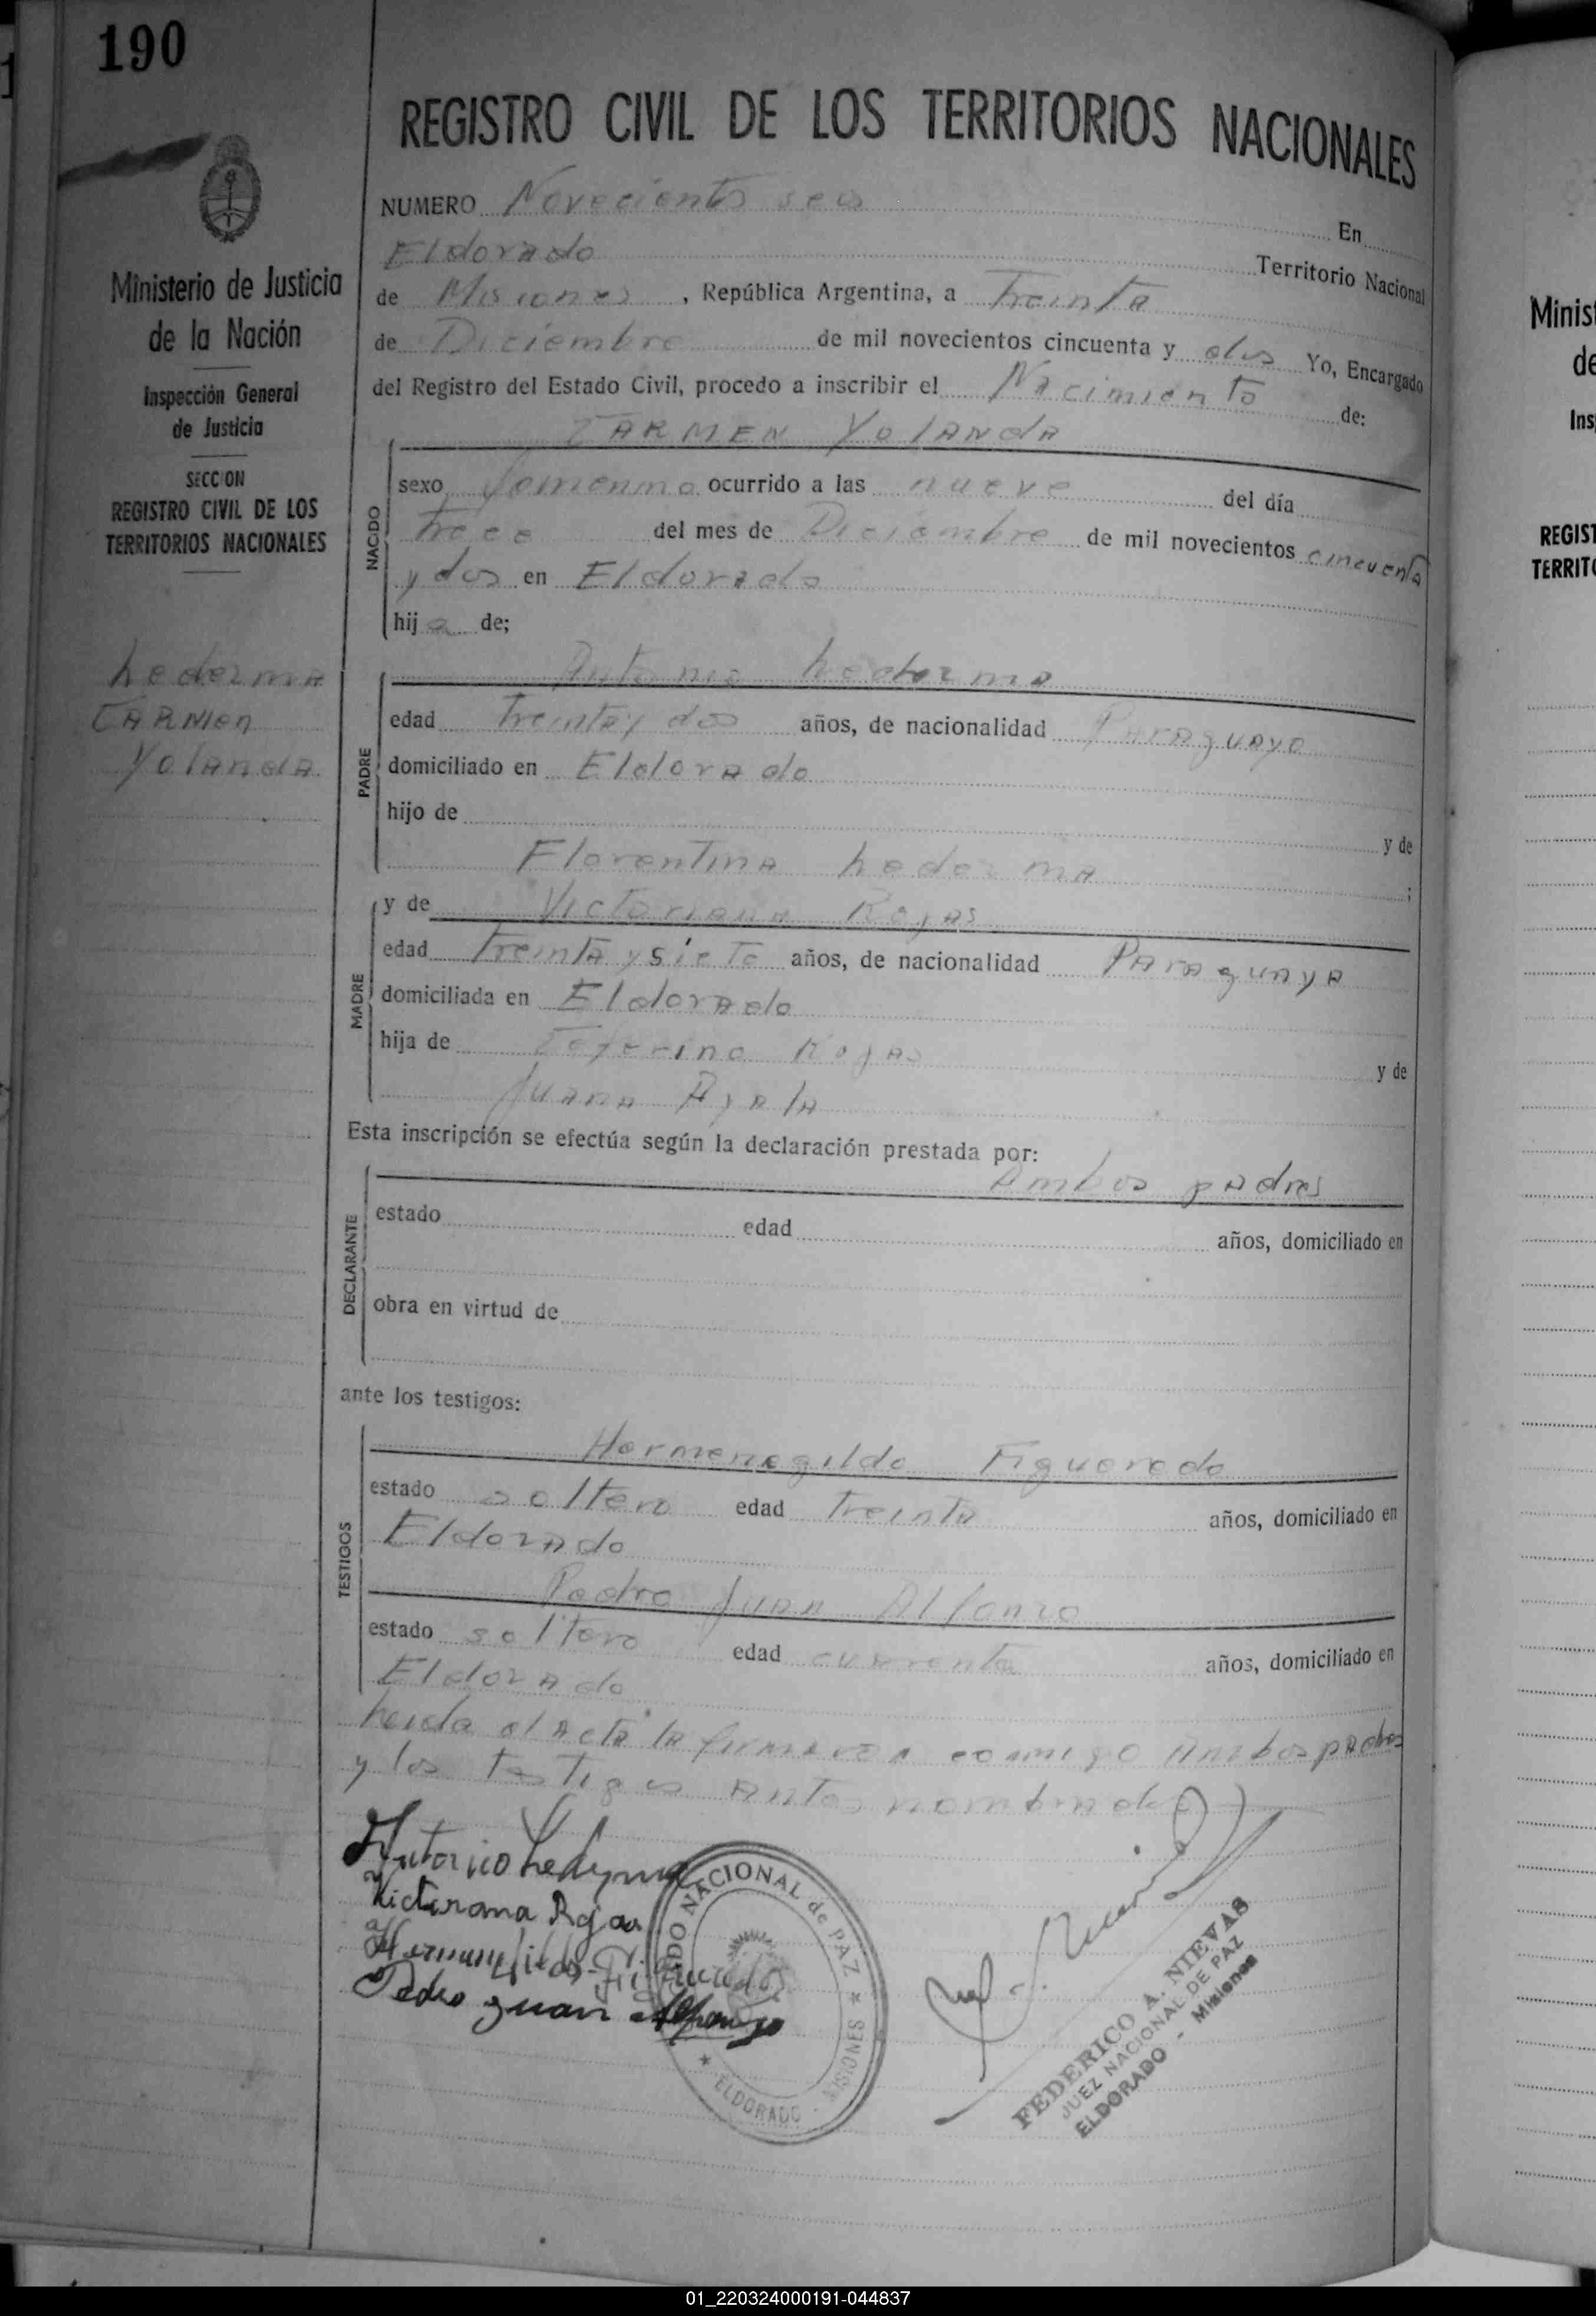 190
REGISTRO CIVIL DE LOS TERRITORIOS NACIONALES
Ministerio de Justicia
de la Nación
Inspección General
de Justicia
SECCION
REGISTRO CIVIL DE LOS
TERRITORIOS NACIONALES
Ledezma
CARMEN
Yolanda
NUMERO Novecientos seis En
Eldorado Territorio Nacional
de Misiones, República Argentina, a Treinta
de Diciembre de mil novecientos cincuenta y dos Yo, Encargado
del Registro del Estado Civil, procedo a inscribir el Nacimiento de:
CARMEN YOLANDA
NACIDO
sexo femenino ocurrido a las nueve del día
Trece del mes de Diciembre de mil novecientos cincuenta
y dos en Eldorado
hija de;
Antonio Ledezma
PADRE
edad Treinta y dos años, de nacionalidad Paraguayo
domiciliado en Eldorado
hijo de y de
Florentina Ledezma ;
y de Victoriana Rojas
MADRE
edad Treinta y siete años, de nacionalidad Paraguaya
domiciliada en Eldorado
hija de Ceferino Rojas y de
Juana Ayala
Esta inscripción se efectúa según la declaración prestada por:
Ambos padres
DECLARANTE
estado edad años, domiciliado en
obra en virtud de
ante los testigos:
Hermenegildo Figueredo
TESTIGOS
estado soltero edad treinta años, domiciliado en
Eldorado
Pedro Juan Alfonzo
estado soltero edad cuarenta años, domiciliado en
Eldorado
Leida el acta la firmaron conmigo Ambos padres
y los testigos antes nombrados
Antonio Ledezma
Victoriana Rojas
Hermenegildo Figueredo
Pedro Juan Alfonzo
JUZGADO NACIONAL de PAZ
* ELDORADO - MISIONES *
FEDERICO A. NIEVAS
JUEZ NACIONAL DE PAZ
ELDORADO - Misiones
Minist
de
Ins
REGIST
TERRITO
01_220324000191-044837